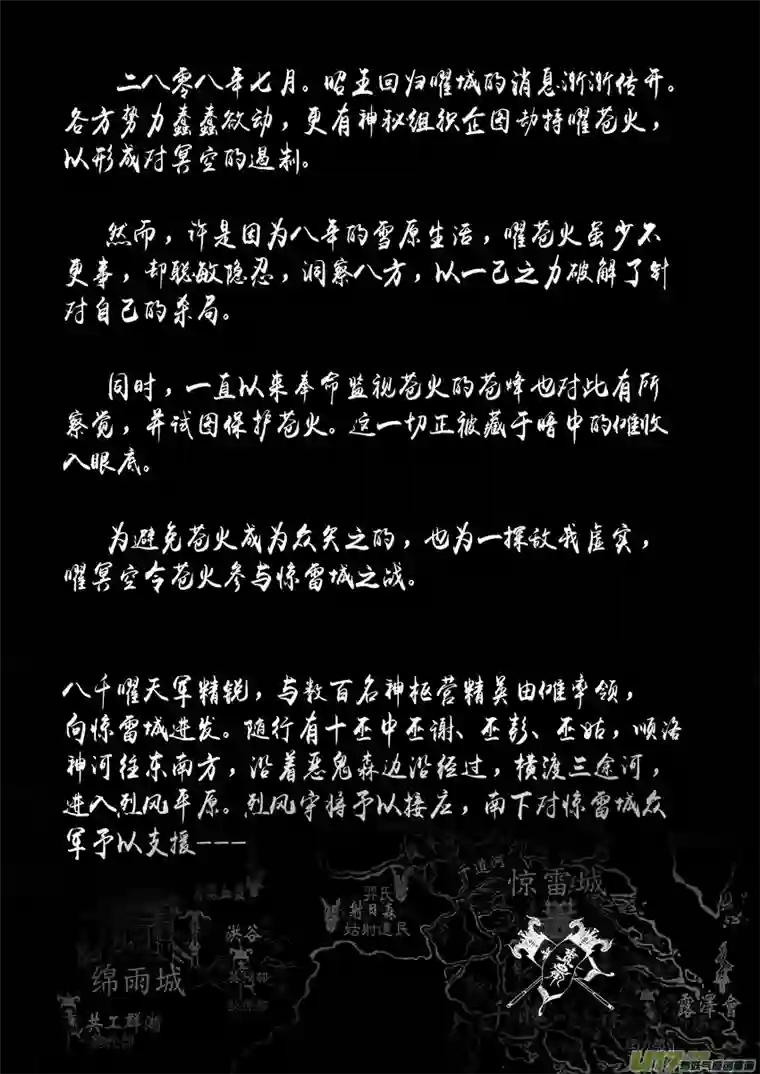 二八零八年七月。昭王回归曜城的消息渐渐传开。
各方势力蠢蠢欲动，更有神秘组织企图劫持曜苍火，
以形成对冥空的遏制。
然而，许是因为八年的雪原生活，曜苍火虽少不
更事，却聪敏隐忍，洞察八方，以一己之力破解了针
对自己的杀局。
同时，一直以来奉命监视苍火的苍峰也对此有所
察觉，并试图保护苍火。这一切正被藏于暗中的傩收
入眼底。
为避免苍火成为众矢之的，也为一探敌我虚实，
曜冥空令苍火参与惊雷城之战。
八千曜天军精锐，与数百名神枢营精英由傩率领，
向惊雷城进发。随行有十巫中巫谢、巫彭、巫姑，顺洛
神河往东南方，沿着恶鬼森边沿经过，横渡三途河，
进入烈风平原。烈风守将予以接应，南下对惊雷城众
军予以支援---
惊雷城
羿氏
射日森
姑射遗民
洪谷
绵雨城
共工群湖
露泽會
U17
有妖气原创漫画